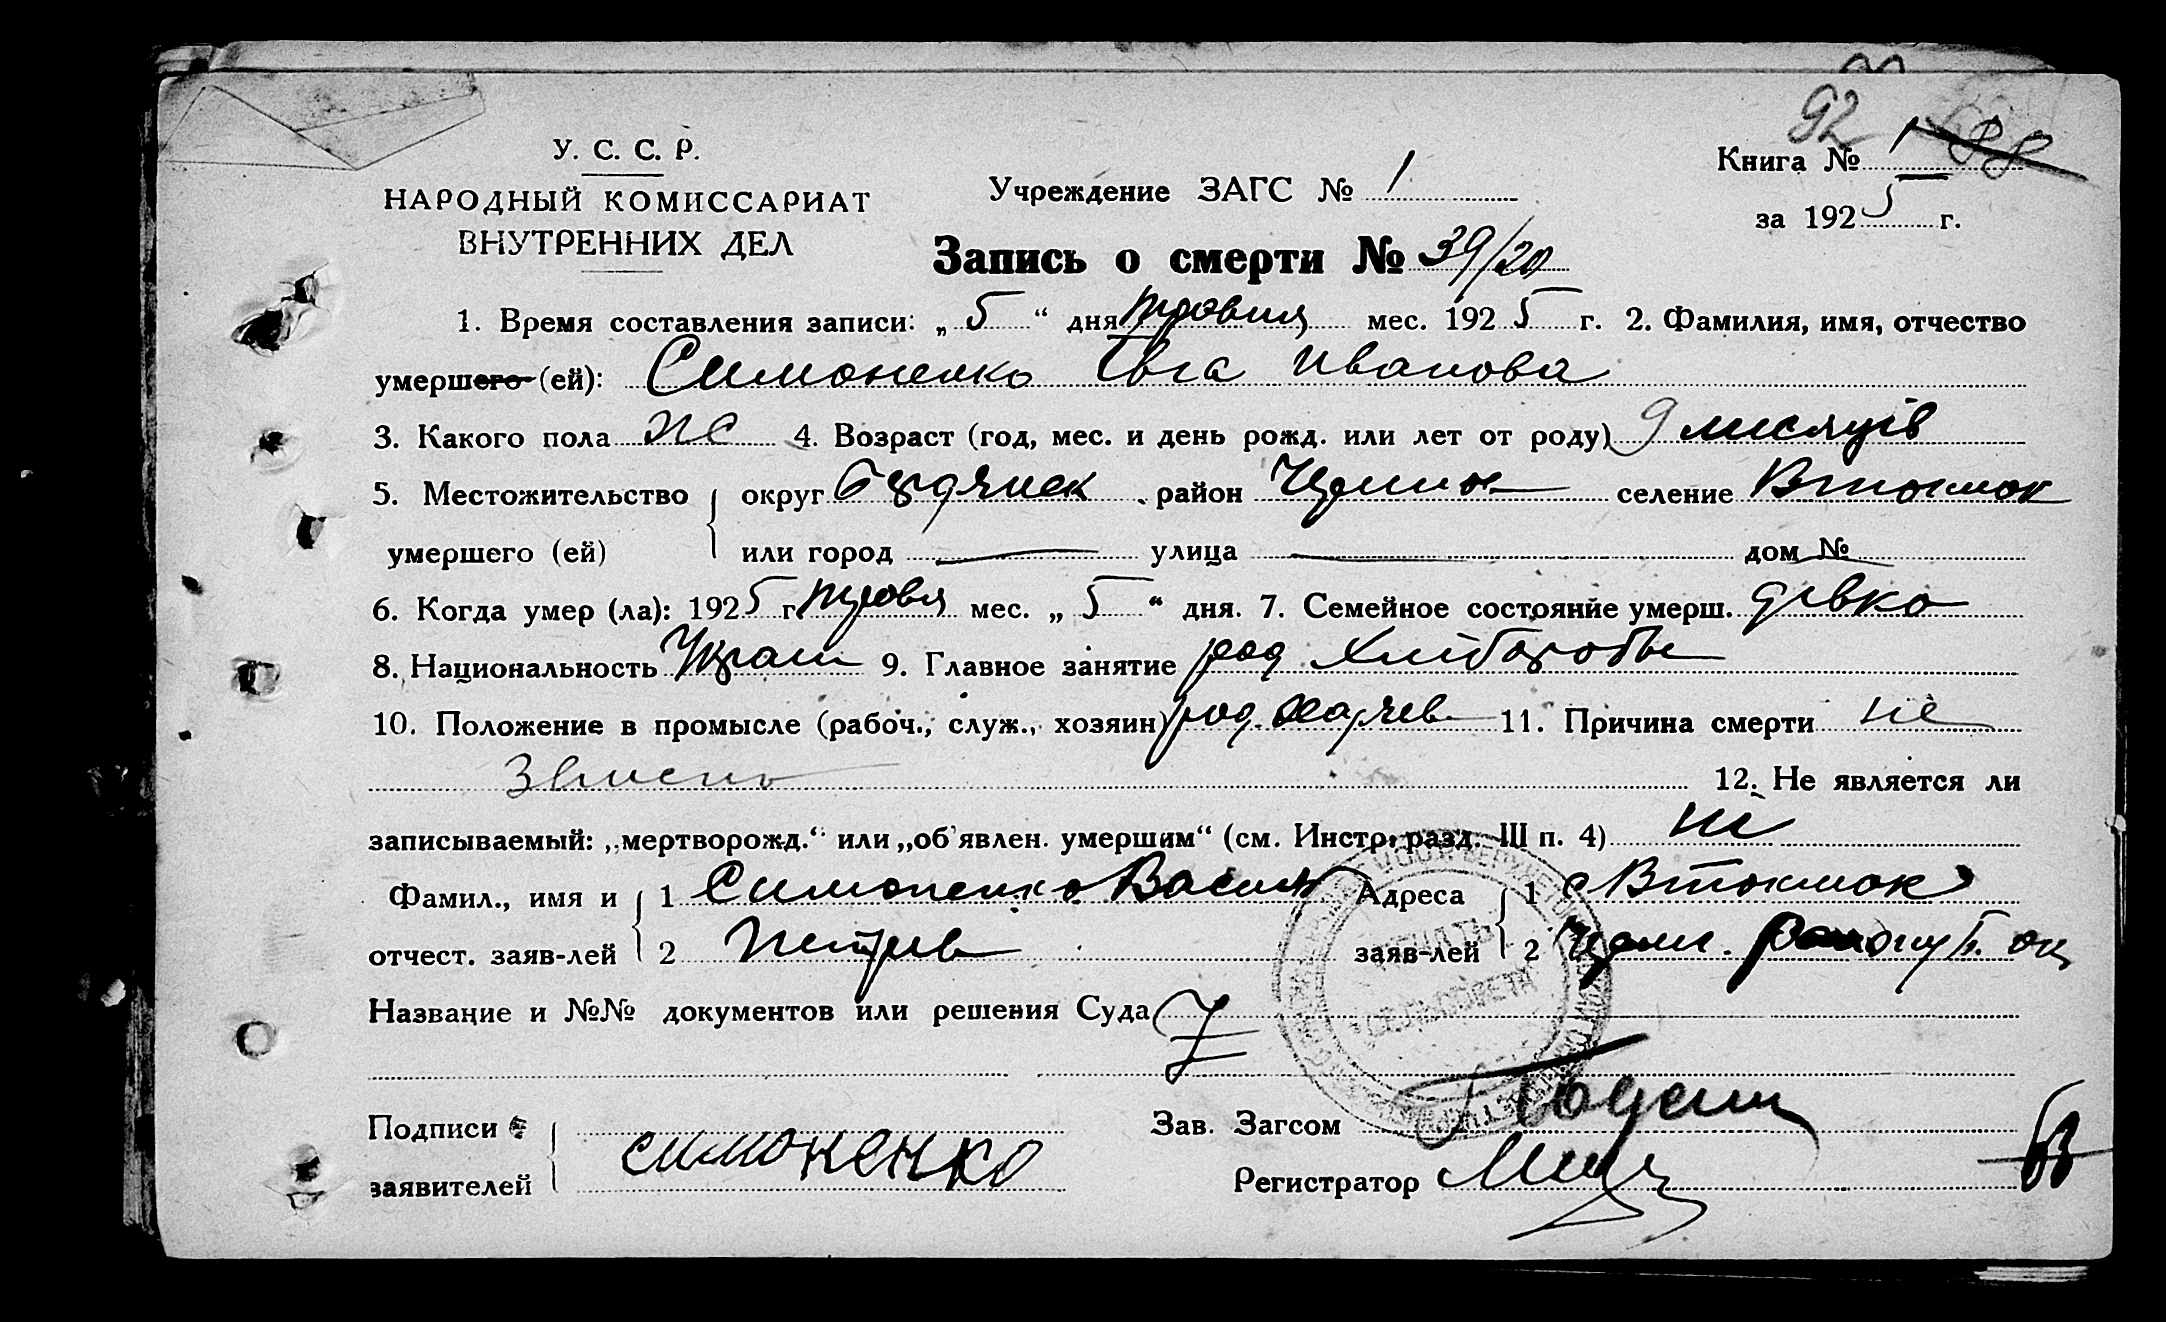 92 88
У. С. С. Р.
НАРОДНЫЙ КОМИССАРИАТ
ВНУТРЕННИХ ДЕЛ
Учреждение ЗАГС № 1
Книга № 1
за 1925 г.
Запись о смерти № 39/20
1. Время составления записи: „5“ дня травня мес. 1925 г. 2. Фамилия, имя, отчество
умершего (ей): Симоненко Евга Иванова
3. Какого пола жс 4. Возраст (год, мес. и день рожд. или лет от роду) 9 мисяців
5. Местожительство округ Бердянск район селение Втокмок
умершего (ей) или город улица дом №
6. Когда умер (ла): 1925 г. травня мес. „5“ дня. 7. Семейное состояние умерш. дівка
8. Национальность Украин 9. Главное занятие род Хлиборобы
10. Положение в промысле (рабоч., служ., хозяин) род. 11. Причина смерти не
звисно 12. Не является ли
записываемый: „мертворожд.“ или „об'явлен. умершим“ (см. Инстр. разд. III п. 4) ні
Фамил., имя и 1 Симоненко Василь Адреса 1 с Втокмок
отчест. заяв-лей 2 Петрив заяв-лей 2 Б. ок
Название и №№ документов или решения Суда
Подписи
заявителей Симоненко
Зав. Загсом
Регистратор